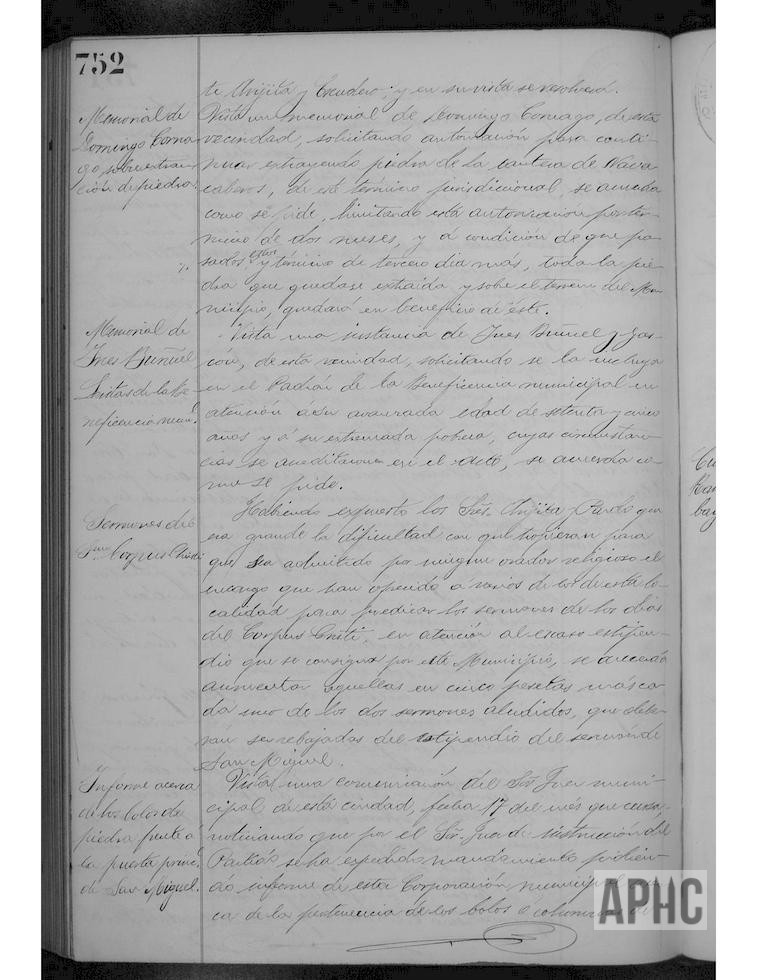 752
te Urijita y Escudero; y en su vista se resolverá.
Memorial de
Domingo Corna
go, sobre extrac
ción de piedra.
Visto un memorial de Domingo Cornago, de esta
vecindad, solicitando autorización para conti-
nuar extrayendo piedra de la cantera de
de este término jurisdiccional, se acuerda
como se pide, limitando esta autorización por tér-
mino de dos meses, y á condición de que pa-
sados estos y término de tercero dia más, toda la pie-
dra que quedase extraida y sobre el terreno del Mu-
nicipio, quedará en beneficio de éste.
Memorial de
Ines Buñuel
Listas de la Be-
neficencia mun.l
Vista una instancia de Ines Buñuel y Gas-
cón, de esta vecindad, solicitando se la incluya
en el Padrón de la Beneficencia municipal en
atención á su avanzada edad de setenta y cinco
años y á su extremada pobreza, cuyas circunstan-
cias se acreditaron en el acto, se acuerda co-
mo se pide.
Sermones del
Corpus Christi
Habiendo expuesto los Sres. Urijita y Pardo que
era grande la dificultad con que tropiezan para
que sea admitido por ningun orador religioso el
encargo que han ofrecido á varios de los de esta lo-
calidad para predicar los sermones de los dias
del Corpus Cristi, en atención al escaso estipen-
dio que se consigna por este Municipio, se acuerda
aumentar aquellas en cinco pesetas más ca-
da uno de los dos sermones aludidos, que debe-
ran ser rebajadas del estipendio del sermon de
San Miguel.
Informe acerca
de los bolos de
piedra frente á
la puerta princ.l
de San Miguel.
Vista una comunicación del Sr. Juez muni-
cipal de esta ciudad, fecha 17 del mes que cursa,
noticiando que por el Sr. Juez de instrucción del
Partido se ha expedido mandamiento pidien-
do informe de esta Corporación municipal acer-
ca de la pertenencia de los bolos ó columnas de
APHC